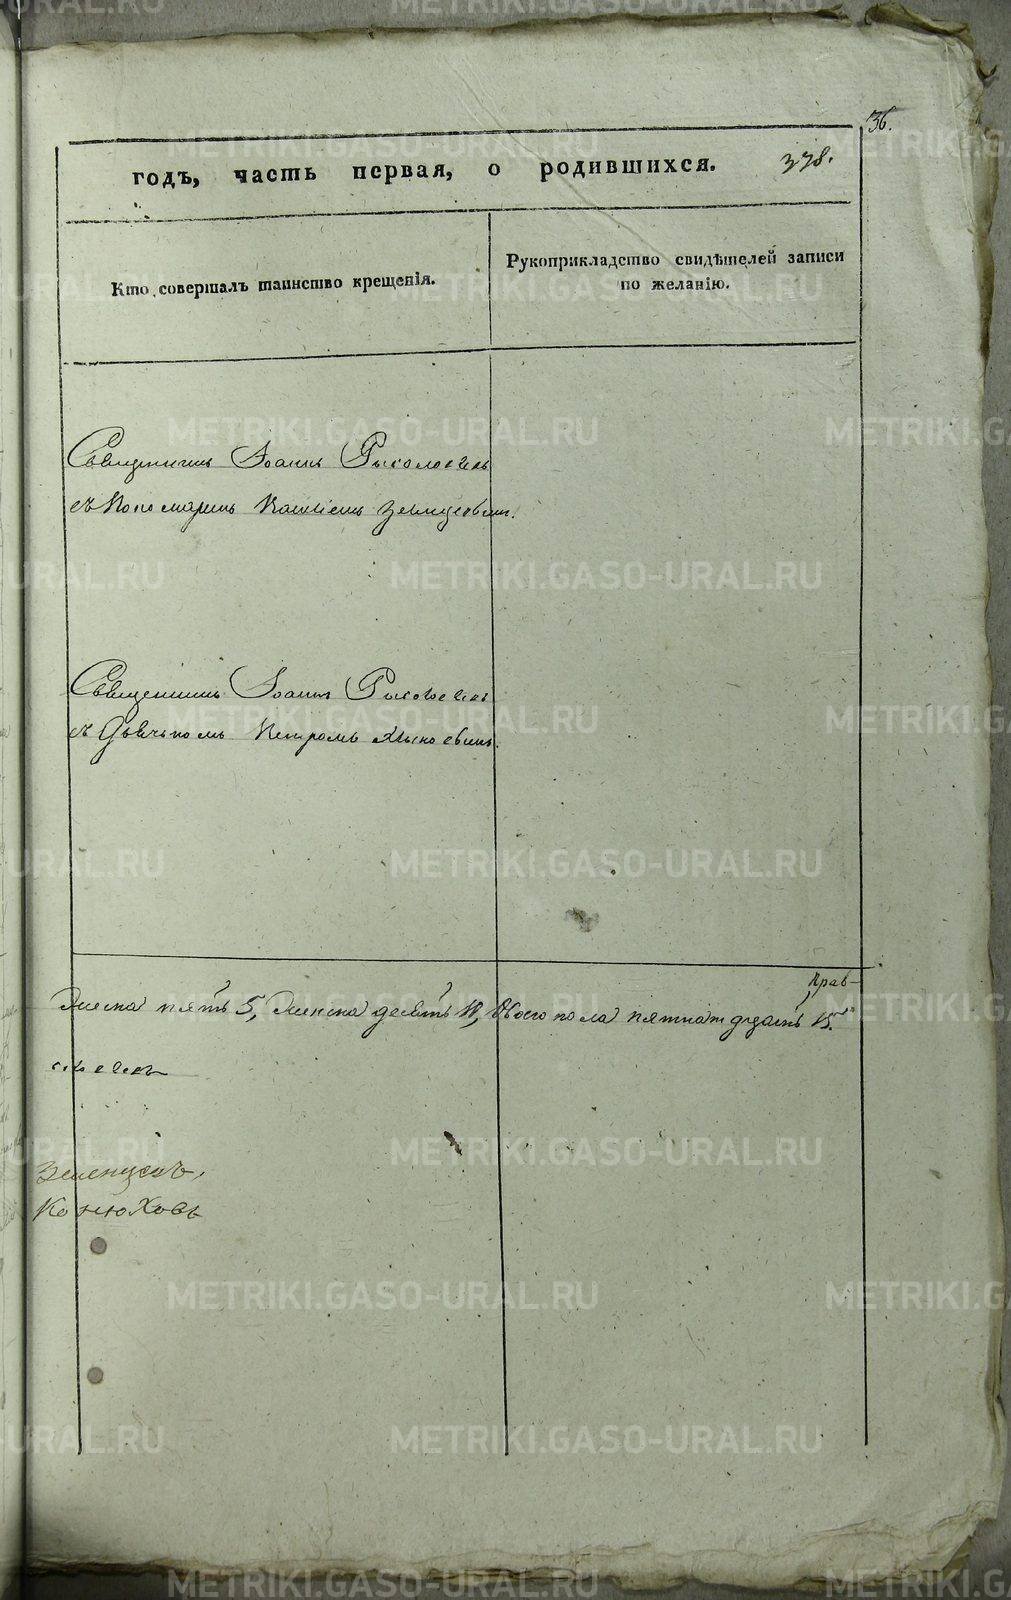 36.
годъ, часть первая, о родившихся. 378.
Кто совершалъ таинство крещенія.
Рукоприкладство свидѣтелей записи
по желанію.
Священникъ Іоаннъ
съ Пономаремъ
Священникъ Іоаннъ
съ Дьячкомъ Петромъ
Прав-
пять 5, Женска десять 10, Обоего пола пятнатдцать 15.
Зеленцовъ,
Конюховъ
METRIKI.GASO-URAL.RU